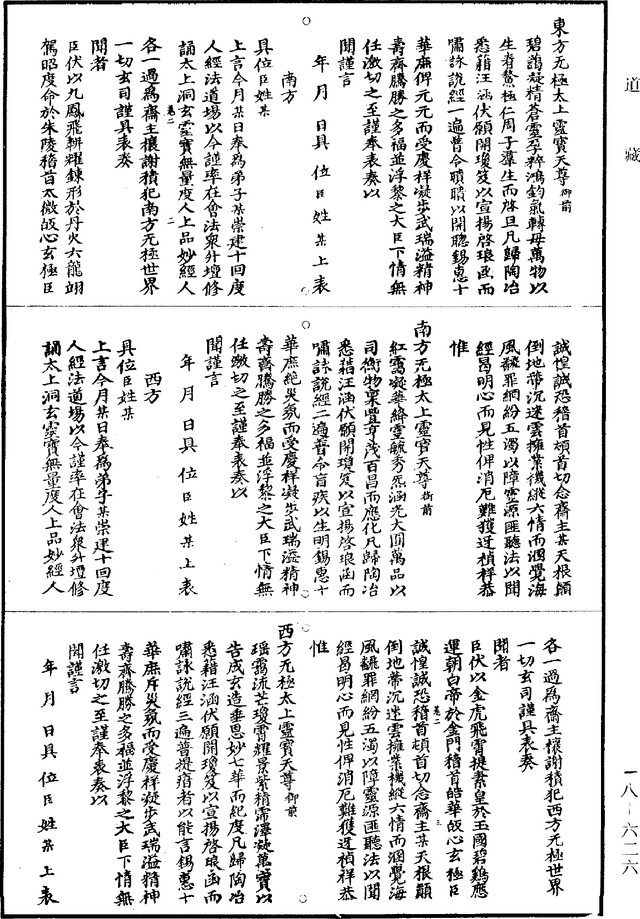 道藏
東方无極太上靈寶天尊御前
碧靄凝精蒼靈孕粹鴻鈞氣轉毋萬物以
生春鰲極仁周子羣生而啓旦凡歸陶冶
悉藉汪涵伏願開瓊笈以宣揚啓琅函而
嘯詠說經一遍普令聵聵以開聰錫惠十
華庶俾元元而受慶祥凝步武瑞溢精神
壽齊騰勝之多福並浮黎之大臣下情無
任激切之至謹奉表奏以
聞謹言
年月日具位臣姓某上表
南方
具位臣姓某
上言今月某日奉為弟子某崇建十回度
人經法道場以今謹率在會法衆升壇修
誦太上洞玄靈寶無量度人上品妙經人
卷二
二
各一過為齋主禳謝積犯南方无極世界
一切玄司謹具表奏
聞者
臣伏以九鳳飛軿耀鍊形於丹火六龍翊
駕昭度命於朱陵稽首太微皈心玄極臣
誠惶誠恐稽首頓首切念齋主某天根顛
倒地帶沉迷雲擁業機縱六情而溷覺海
風飜罪網紛五濁以障靈源匪聽法以聞
經曷明心而見性俾消厄難獲迓禎祥恭
惟
南方无極太上靈寶天尊御前
紅靄凝華絳雲毓秀炁涵光大圓萬品以
司衡物稟豐亨茂百昌而應化凡歸陶冶
悉藉汪涵伏願開瓊笈以宣揚啓琅函而
嘯詠說經二遍普令盲疾以生明錫惠十
華庶絕災氛而受慶祥凝步武瑞溢精神
壽齊騰勝之多福並浮黎之大臣下情無
任激切之至謹奉表奏以
聞謹言
年月日具位臣姓某上表
西方
具位臣姓某
上言今月某日奉為弟子某崇建十回度
人經法道場以今謹率在會法衆升壇修
誦太上洞玄靈寶無量度人上品妙經人
各一過為齋主禳謝積犯西方无極世界
一切玄司謹具表奏
聞者
臣伏以金虎飛霄提素皇於玉國碧鷄應
運朝白帝於金門稽首皓華皈心玄極臣
卷二
三
誠惶誠恐稽首頓首切念齋主某天根顛
倒地帶沉迷雲擁業機縱六情而溷覺海
風飜罪網紛五濁以障靈源匪聽法以聞
經曷明心而見性俾消厄難獲迓禎祥恭
惟
西方无極太上靈寶天尊御前
瑶靄流芒瓊霄耀景紫精霈澤凝萬寶以
告成玄造垂恩妙七華而紀度凡歸陶冶
悉藉汪涵伏願開瓊笈以宣揚啓琅函而
嘯詠說經三遍普提瘖者以能言錫惠十
華庶斥災氛而受慶祥凝步武瑞溢精神
壽齊騰勝之多福並浮黎之大臣下情無
任激切之至謹奉表奏以
聞謹言
年月日具位臣姓某上表
一八－六二六